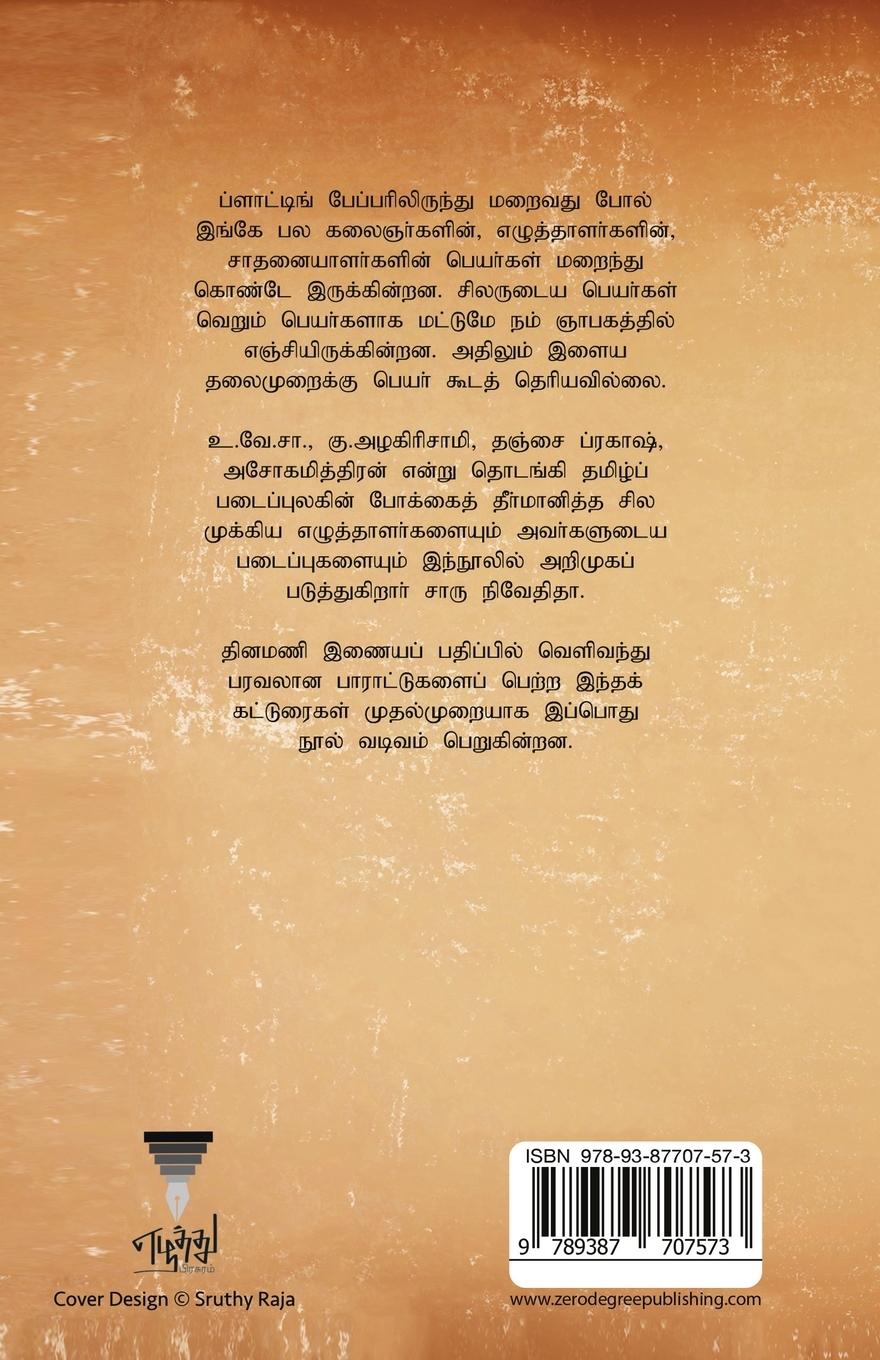 ப்ளாட்டிங் பேப்பரிலிருந்து மறைவது போல்
இங்கே பல கலைஞர்களின், எழுத்தாளர்களின்,
சாதனையாளர்களின் பெயர்கள் மறைந்து
கொண்டே இருக்கின்றன. சிலருடைய பெயர்கள்
வெறும் பெயர்களாக மட்டுமே நம் ஞாபகத்தில்
எஞ்சியிருக்கின்றன. அதிலும் இளைய
தலைமுறைக்கு பெயர் கூடத் தெரியவில்லை.
உ.வே.சா., கு.அழகிரிசாமி, தஞ்சை ப்ரகாஷ்,
அசோகமித்திரன் என்று தொடங்கி தமிழ்ப்
படைப்புலகின் போக்கைத் தீர்மானித்த சில
முக்கிய எழுத்தாளர்களையும் அவர்களுடைய
படைப்புகளையும் இந்நூலில் அறிமுகப்
படுத்துகிறார் சாரு நிவேதிதா.
தினமணி இணையப் பதிப்பில் வெளிவந்து
பரவலான பாராட்டுகளைப் பெற்ற இந்தக்
கட்டுரைகள் முதல்முறையாக இப்பொது
நூல் வடிவம் பெறுகின்றன.
எழுத்து
பிரசுரம்
Cover Design © Sruthy Raja
ISBN 978-93-87707-57-3
9 789387 707573
www.zerodegreepublishing.com